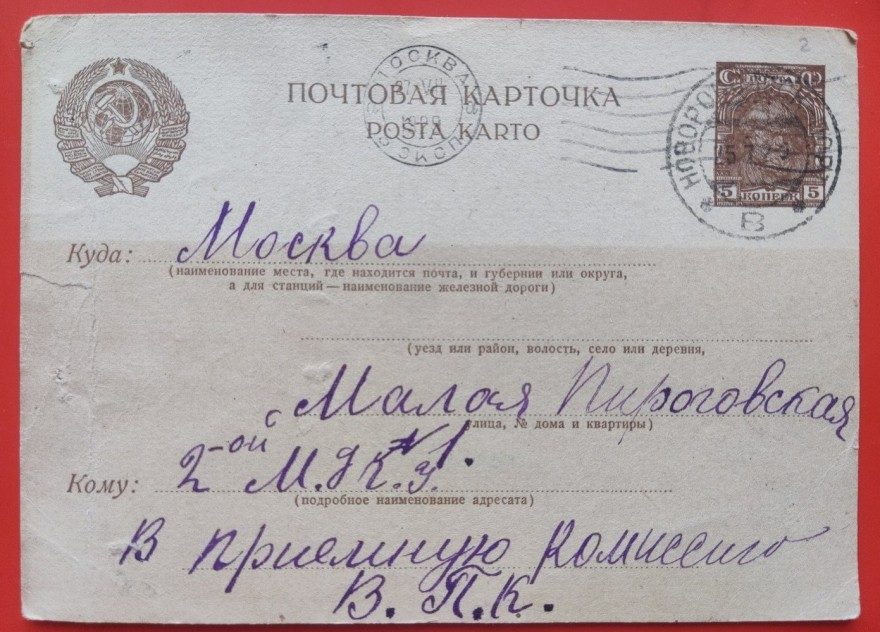 2
МОСКВА
ПОЧТОВАЯ КАРТОЧКА
POSTA KARTO
5 КОПЕЕК 5
В
Куда: Москва
(наименование места, где находится почта, и губернии или округа,
а для станций — наименование железной дороги)
(уезд или район, волость, село или деревня,
Малая Пироговская
улица, № дома и квартиры)
Кому: 2-ой М.
(подробное наименование адресата)
В приемную Комиссию
В. П. К.